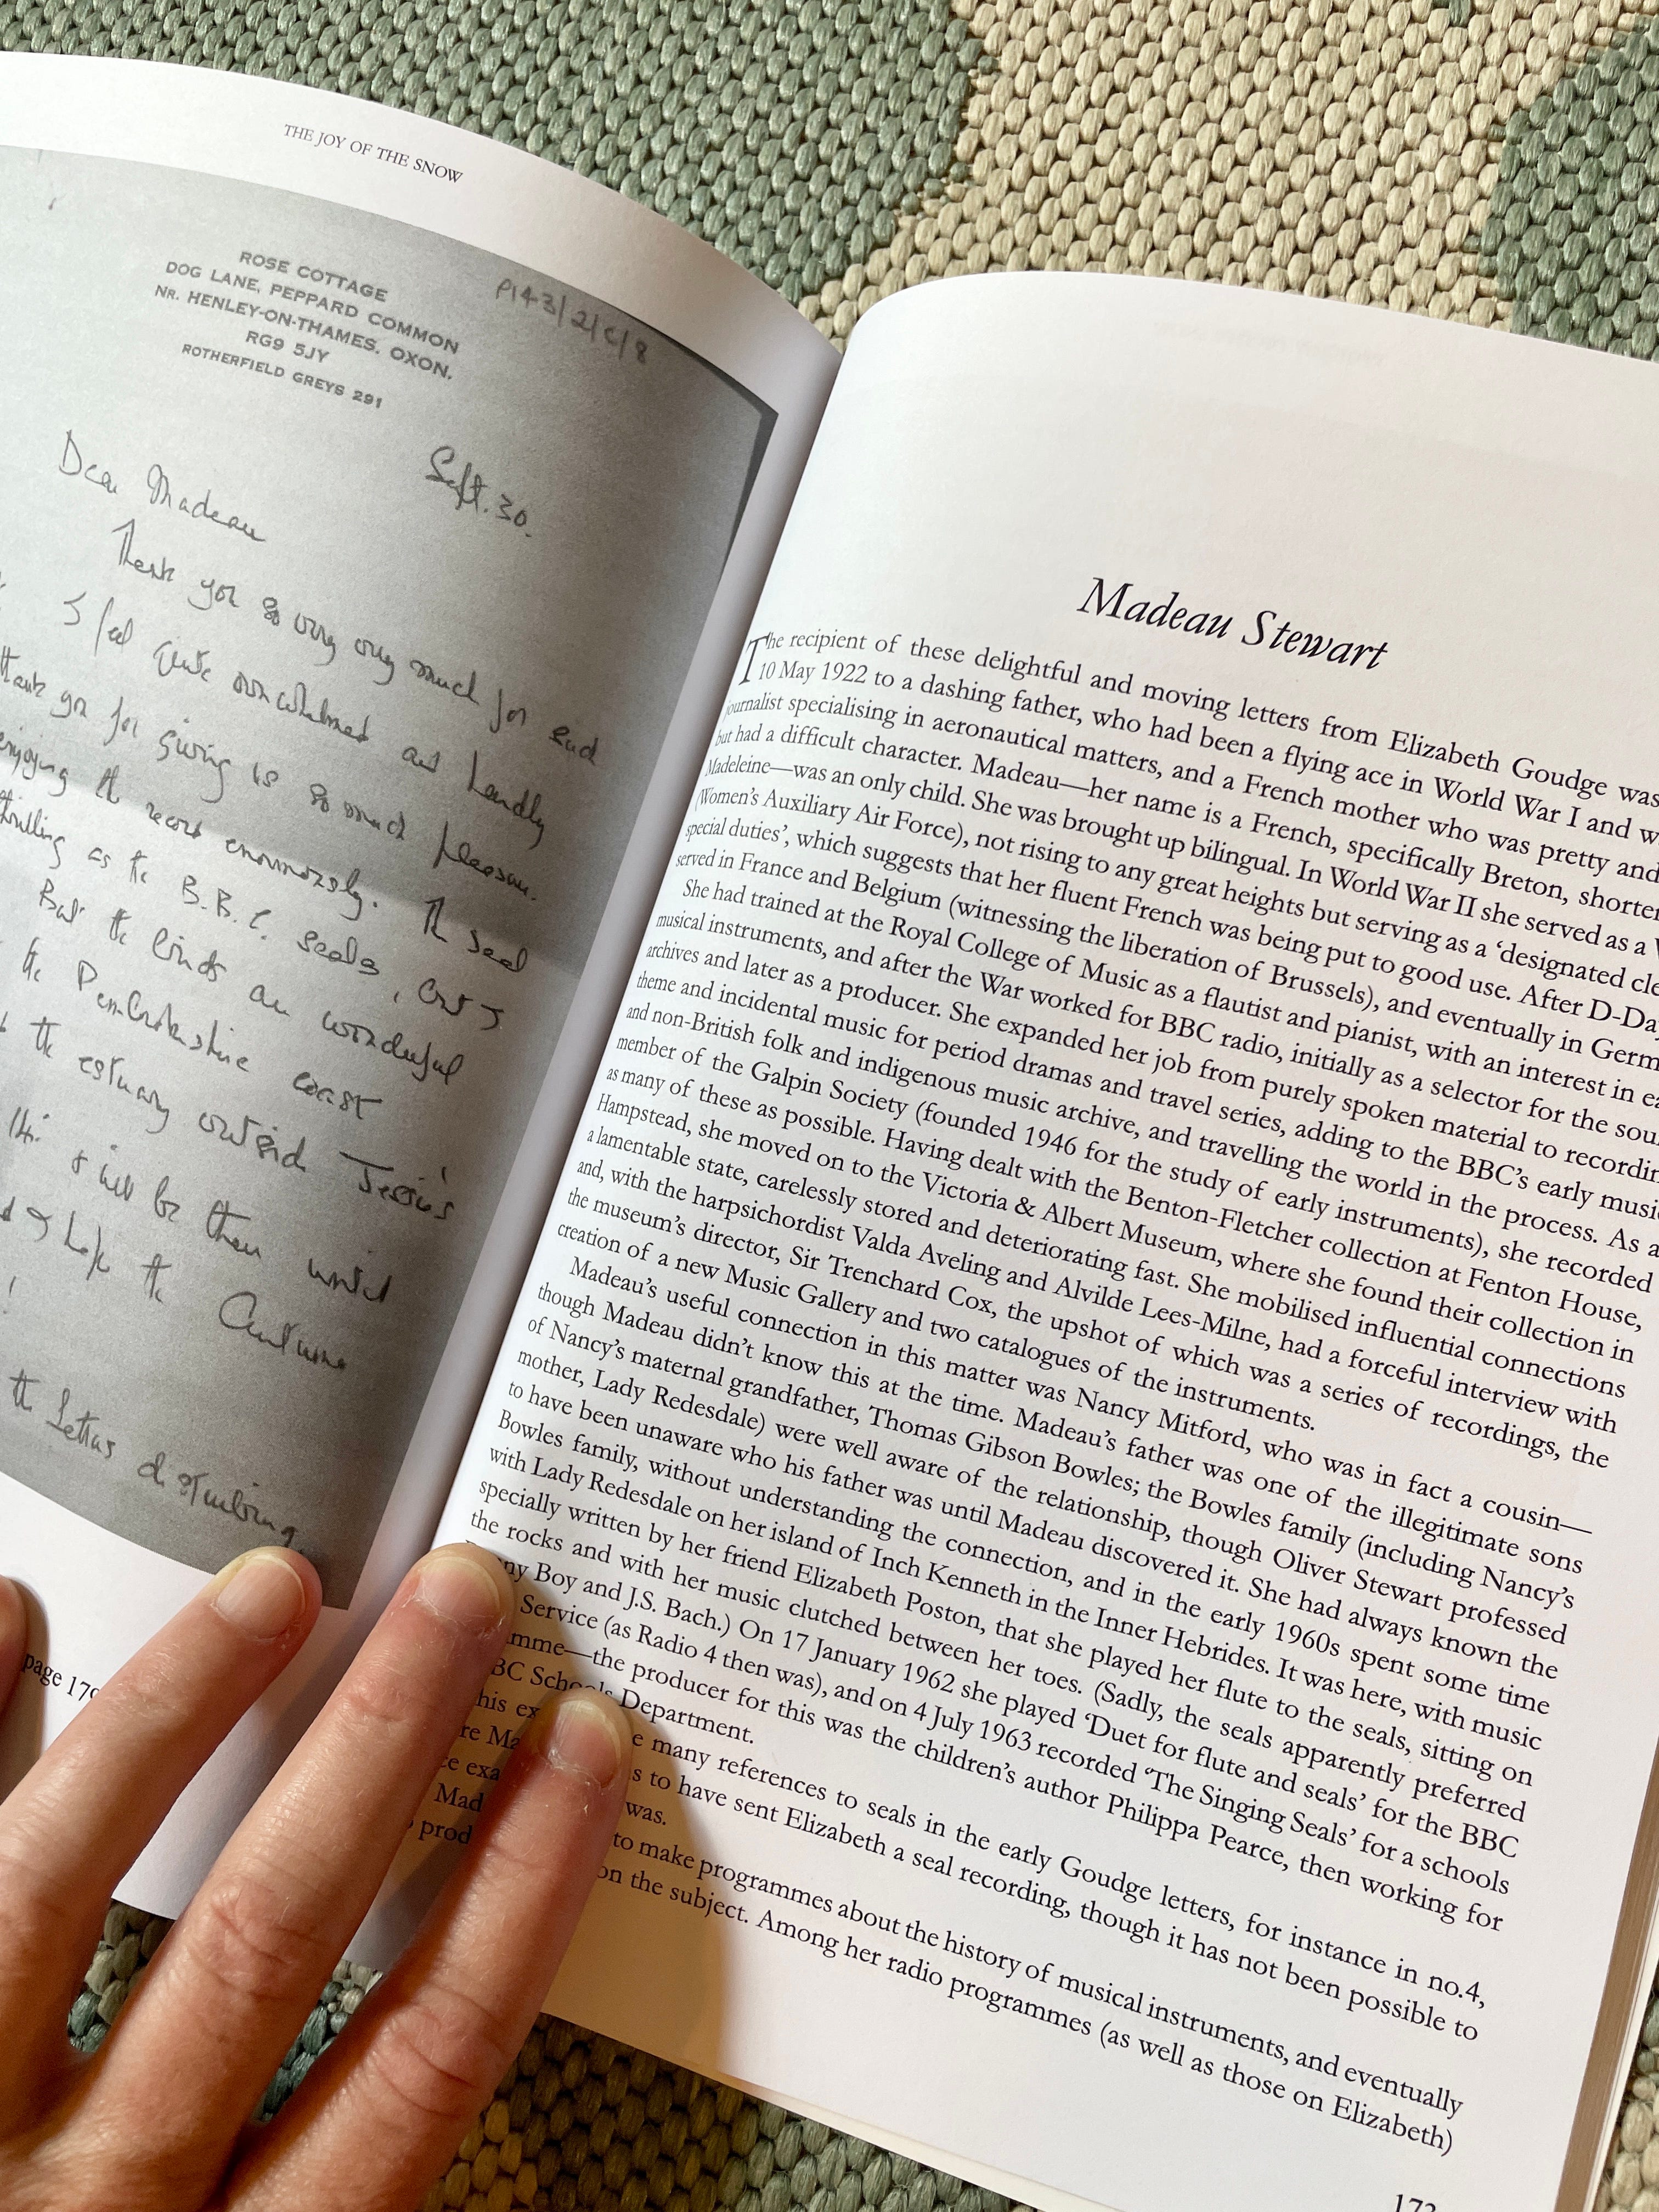 THE JOY OF THE SNOW
ROSE COTTAGE
DOG LANE, PEPPARD COMMON
NR. HENLEY-ON-THAMES, OXON.
RG9 5JY
ROTHERFIELD GREYS 291
P143/2/C/8
Sept. 30.
Dear Madeau
Thank you so very very much for
I feel quite overwhelmed and
thank you for giving us so much pleasure.
enjoying the record enormously. The seal
thrilling as the B.B.C. seals,
But the birds are wonderful
the Pembrokeshire coast
the estuary outside Jessie's
14th. & will be there until
hope the Autumn
!
the letters
page 179
Madeau Stewart
The recipient of these delightful and moving letters from Elizabeth Goudge was
10 May 1922 to a dashing father, who had been a flying ace in World War I and
journalist specialising in aeronautical matters, and a French mother who was pretty and
but had a difficult character. Madeau—her name is a French, specifically Breton,
Madeleine—was an only child. She was brought up bilingual. In World War II she served as a
(Women's Auxiliary Air Force), not rising to any great heights but serving as a 'designated
special duties', which suggests that her fluent French was being put to good use. After D-Day
served in France and Belgium (witnessing the liberation of Brussels), and eventually in
She had trained at the Royal College of Music as a flautist and pianist, with an interest in
musical instruments, and after the War worked for BBC radio, initially as a selector for the
archives and later as a producer. She expanded her job from purely spoken material to
theme and incidental music for period dramas and travel series, adding to the BBC's early
and non-British folk and indigenous music archive, and travelling the world in the process. As a
member of the Galpin Society (founded 1946 for the study of early instruments), she recorded
as many of these as possible. Having dealt with the Benton-Fletcher collection at Fenton House,
Hampstead, she moved on to the Victoria & Albert Museum, where she found their collection in
a lamentable state, carelessly stored and deteriorating fast. She mobilised influential connections
and, with the harpsichordist Valda Aveling and Alvilde Lees-Milne, had a forceful interview with
the museum's director, Sir Trenchard Cox, the upshot of which was a series of recordings, the
creation of a new Music Gallery and two catalogues of the instruments.
Madeau's useful connection in this matter was Nancy Mitford, who was in fact a cousin—
though Madeau didn't know this at the time. Madeau's father was one of the illegitimate sons
of Nancy's maternal grandfather, Thomas Gibson Bowles; the Bowles family (including Nancy's
mother, Lady Redesdale) were well aware of the relationship, though Oliver Stewart professed
to have been unaware who his father was until Madeau discovered it. She had always known the
Bowles family, without understanding the connection, and in the early 1960s spent some time
with Lady Redesdale on her island of Inch Kenneth in the Inner Hebrides. It was here, with music
specially written by her friend Elizabeth Poston, that she played her flute to the seals, sitting on
the rocks and with her music clutched between her toes. (Sadly, the seals apparently preferred
ny Boy and J.S. Bach.) On 17 January 1962 she played 'Duet for flute and seals' for the BBC
Service (as Radio 4 then was), and on 4 July 1963 recorded 'The Singing Seals' for a schools
mme—the producer for this was the children's author Philippa Pearce, then working for
BC Schools Department.
his ex e many references to seals in the early Goudge letters, for instance in no.4,
re Ma s to have sent Elizabeth a seal recording, though it has not been possible to
ce exa was.
Mad to make programmes about the history of musical instruments, and eventually
prod on the subject. Among her radio programmes (as well as those on Elizabeth)
173